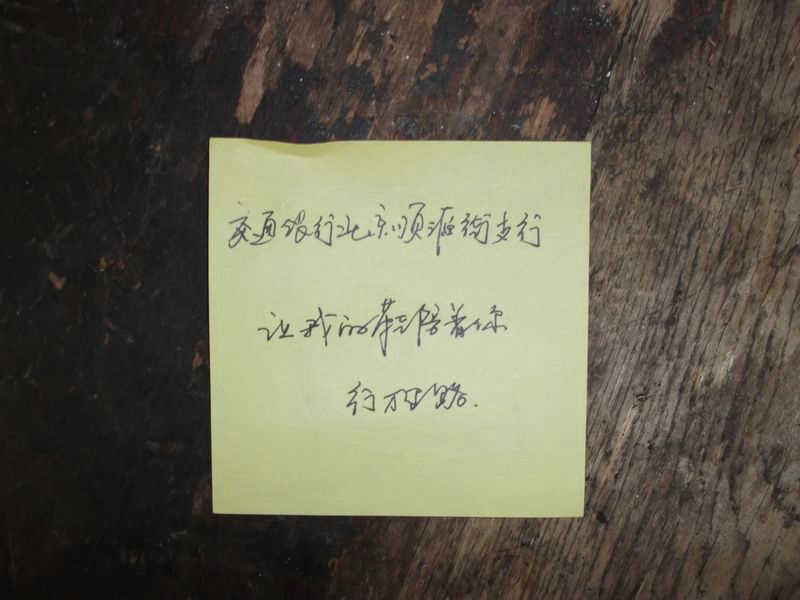 交通银行北京顺源街支行
让我的陪着你
行万里路.